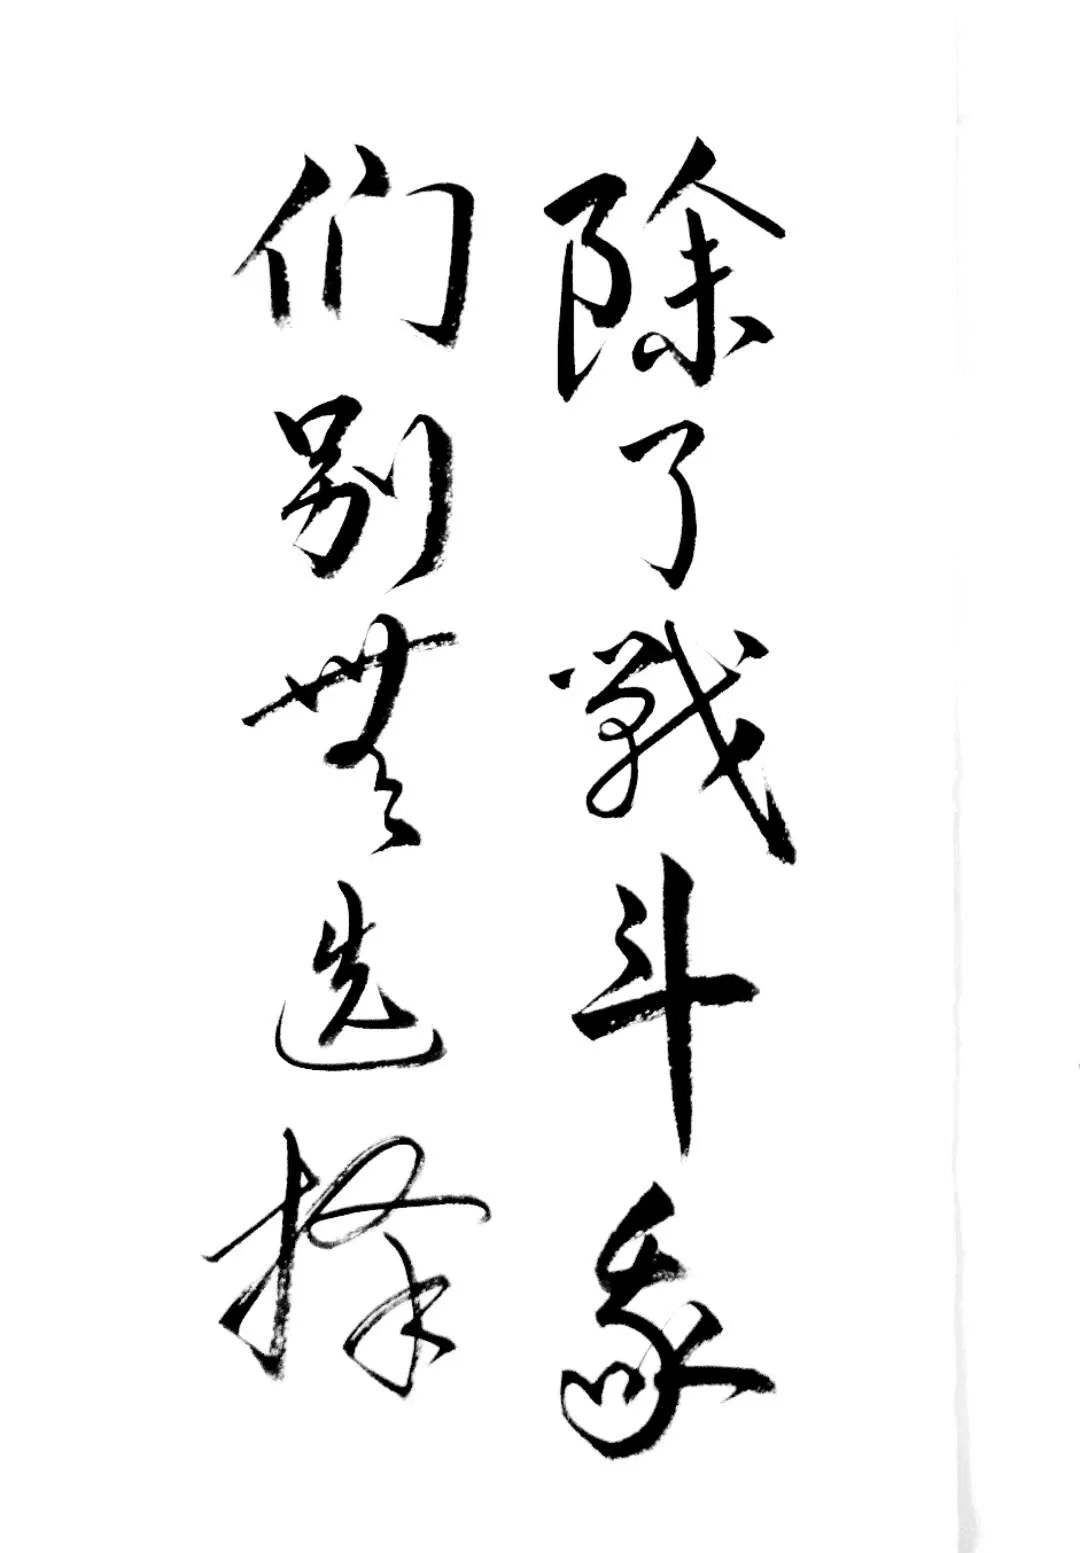 除了戰斗我
们别無选择